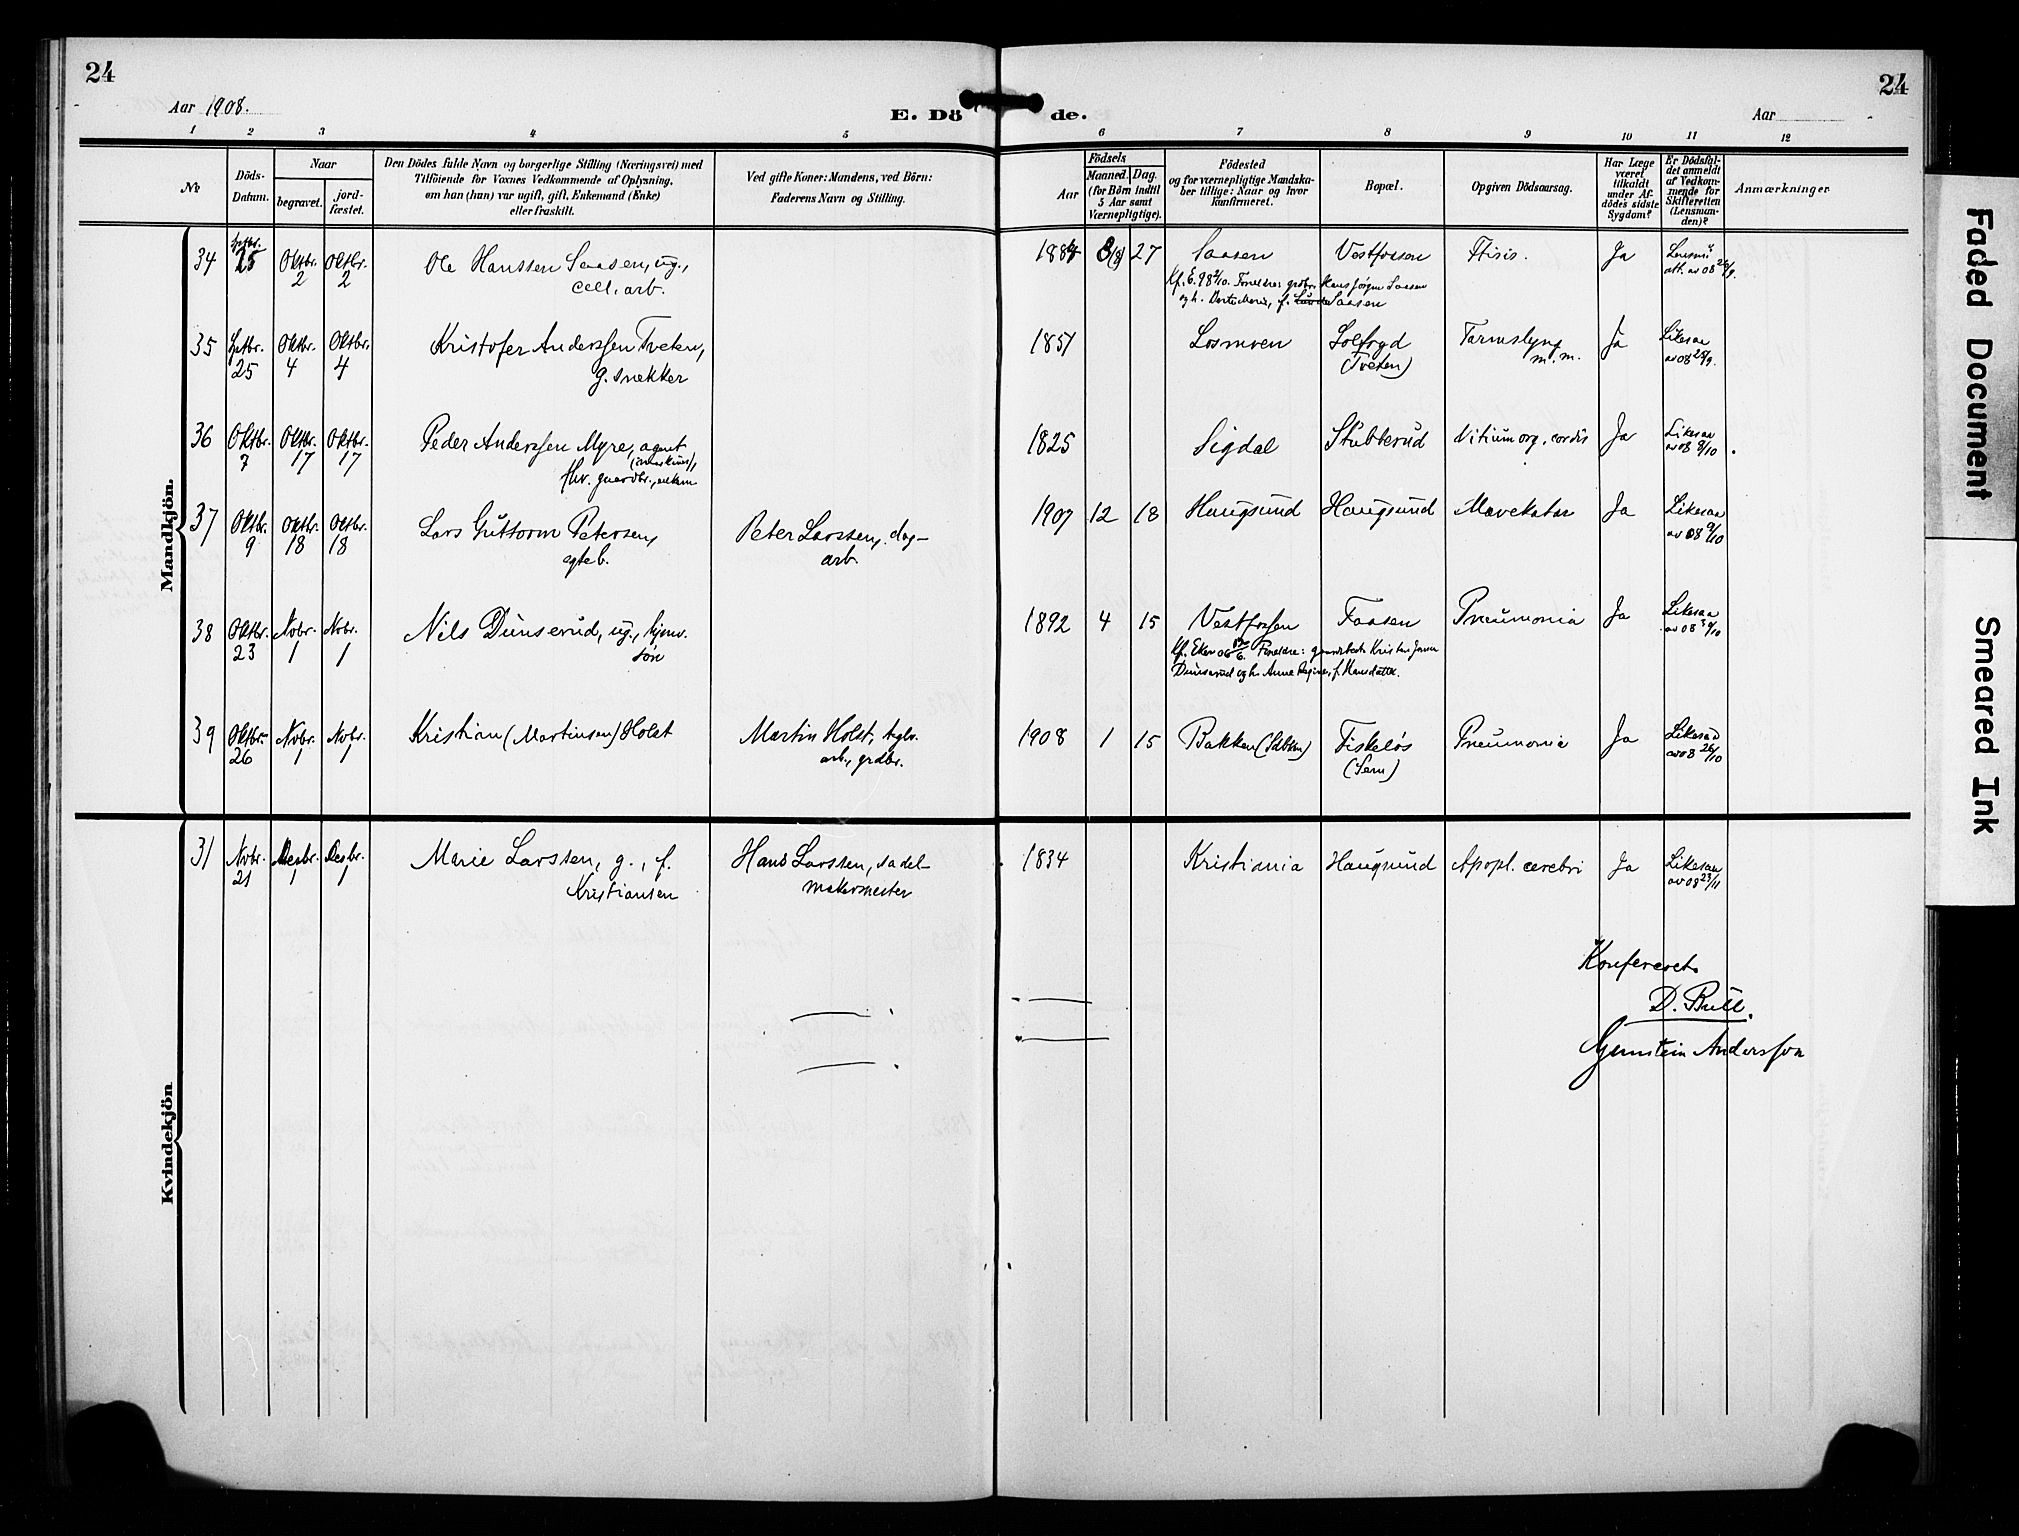 24
24
Aar 1908.
E. Dö
de.
Aar
1 2 3 4 5 6 7 8 9 10 11 12
No
Döds-
Datum.
Naar
begravet.
jord-
fæstet.
Den Dödes fulde Navn og borgerlige Stilling (Næringsvei) med
Tilföiende for Voxnes Vedkommende af Oplysning,
om han (hun) var ugift, gift, Enkemand (Enke)
eller fraskilt.
Ved gifte Koner: Mandens, ved Börn:
Faderens Navn og Stilling.
Födsels
Aar
Maaned.
Dag.
(for Börn indtil
5 Aar samt
Værnepligtige).
Födested
og for værnepligtige Mandska-
ber tillige: Naar og hvor
konfirmeret.
Bopæl.
Opgiven Dödsaarsag.
Har Læge
været
tilkaldt
under Af-
dödes sidste
Sygdom?
Er Dödsfal-
det anmeldt
af Vedkom-
mende for
Skifteretten
(Lensman-
den)?
Anmærkninger
Mandkjön.
34 Sptbr. 25 Oktbr. 2 Oktbr. 2 Ole Hanssen Saasen, ug.,
cell. arb.
1884 8 27 Saasen Vestfossen Ftisis. Ja Lensm.
att. av 08 26/9.
Kf. E. 98 2/10. Foreldre: grdbr. Hans Jørgen Saasen
og h. Dorte Marie, f. Saasen
35 Sptbr. 25 Oktbr. 4 Oktbr. 4 Kristofer Anderssen Tveten,
g. snekker
1851 Losmoen Solfoqd
(Tveten)
Tarmslyng
m. m.
Ja Likesaa
av 08 28/9.
36 Oktbr. 7 Oktbr. 17 Oktbr. 17 Peder Anderssen Myre, agent
(i maskiner),
fhv. gaardbr., enkem
1825 Sigdal Stubberud Vitium org. cordis Ja Likesaa
av 08 8/10
37 Oktbr. 9 Oktbr. 18 Oktbr. 18 Lars Guttorm Petersen,
egteb.
Peter Larssen, dag-
arb.
1907 12 18 Haugsund Haugsund Mavekatar Ja Likesaa
av 08 9/10
38 Oktbr. 23 Novbr. 1 Novbr. 1 Nils Dunserud, ug., hjemv.
søn
1892 4 15 Vestfossen Faasen Pneumonia Ja Likesaa
av 08 /10
Kf. Eker 06 Foreldre: Kristen Jensen
Dunserud og h. Anne Regine, f. Hansdatter.
39 Oktbr. 26 Novbr. 1 Novbr. 1 Kristian (Martinsen) Holst
Martin Holst, teglv.
arb., grdbr.
1908 1 15 Bakken Fiskeløs
(Sem)
Pneumonia Ja Likesaa
av 08 26/10
Kvindekjön
31 Novbr. 21 Desbr. 1 Desbr. 1 Marie Larssen, g., f.
Kristiansen
Hans Larssen, sadel-
makermester
1834 Kristiania Haugsund Apopl. cerebri Ja Likesaa
av 08 23/11
Konfereret
D. Bull.
Gunstein Anderssen
Faded Document
Smeared Ink